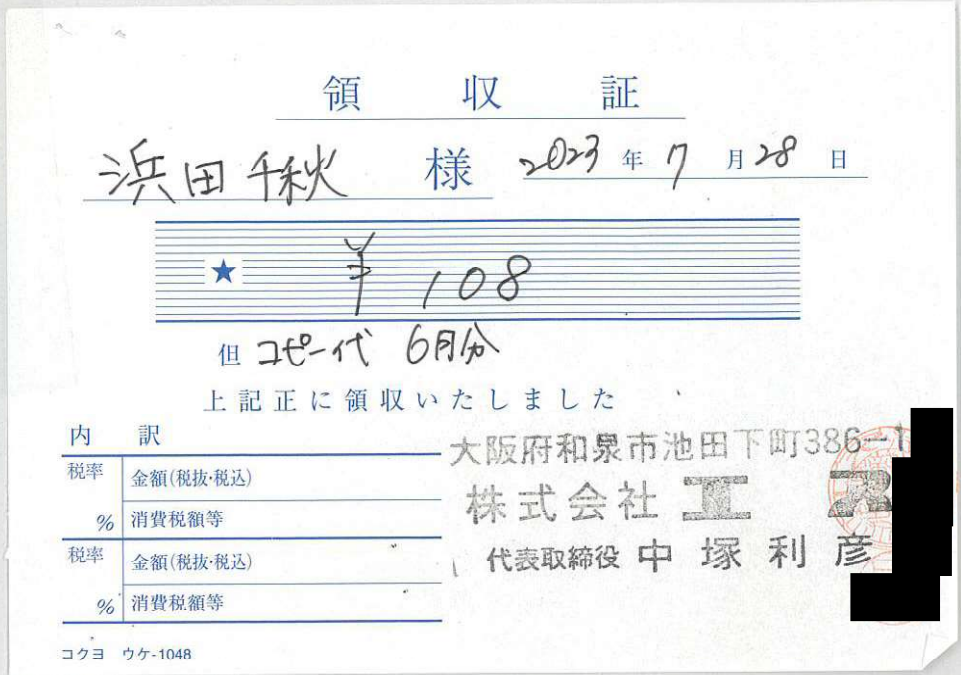 領収証
浜田千秋 様 2023年7月28日
★ ¥108
但 コピー代 6月分
上記正に領収いたしました
内訳
税率 金額(税抜・税込)
% 消費税額等
税率 金額(税抜・税込)
% 消費税額等
コクヨ ウケ-1048
大阪府和泉市池田下町386-1
株式会社エス
代表取締役 中塚利彦